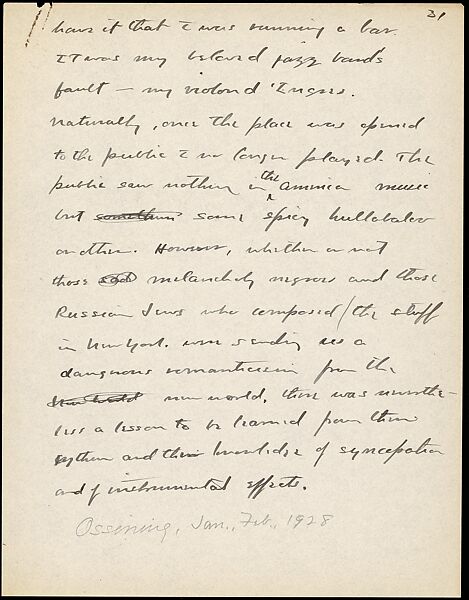 31
have it that I was running a bar.
It was my beloved jazz band's
fault — my violon d'Ingres.
Naturally, once the place was opened
to the public I no longer played. The
public saw nothing in the American music
but something some spicy hullabaloo
or other. However, whether or not
those sad melancholy negroes and those
Russian Jews who composed the stuff
in New York were sending us a
dangerous romanticism from the
new world new world, there was neverthe-
less a lesson to be learned from their
rythm and their knowledge of syncopation
and of instrumental effects.
Ossining, Jan., Feb., 1928